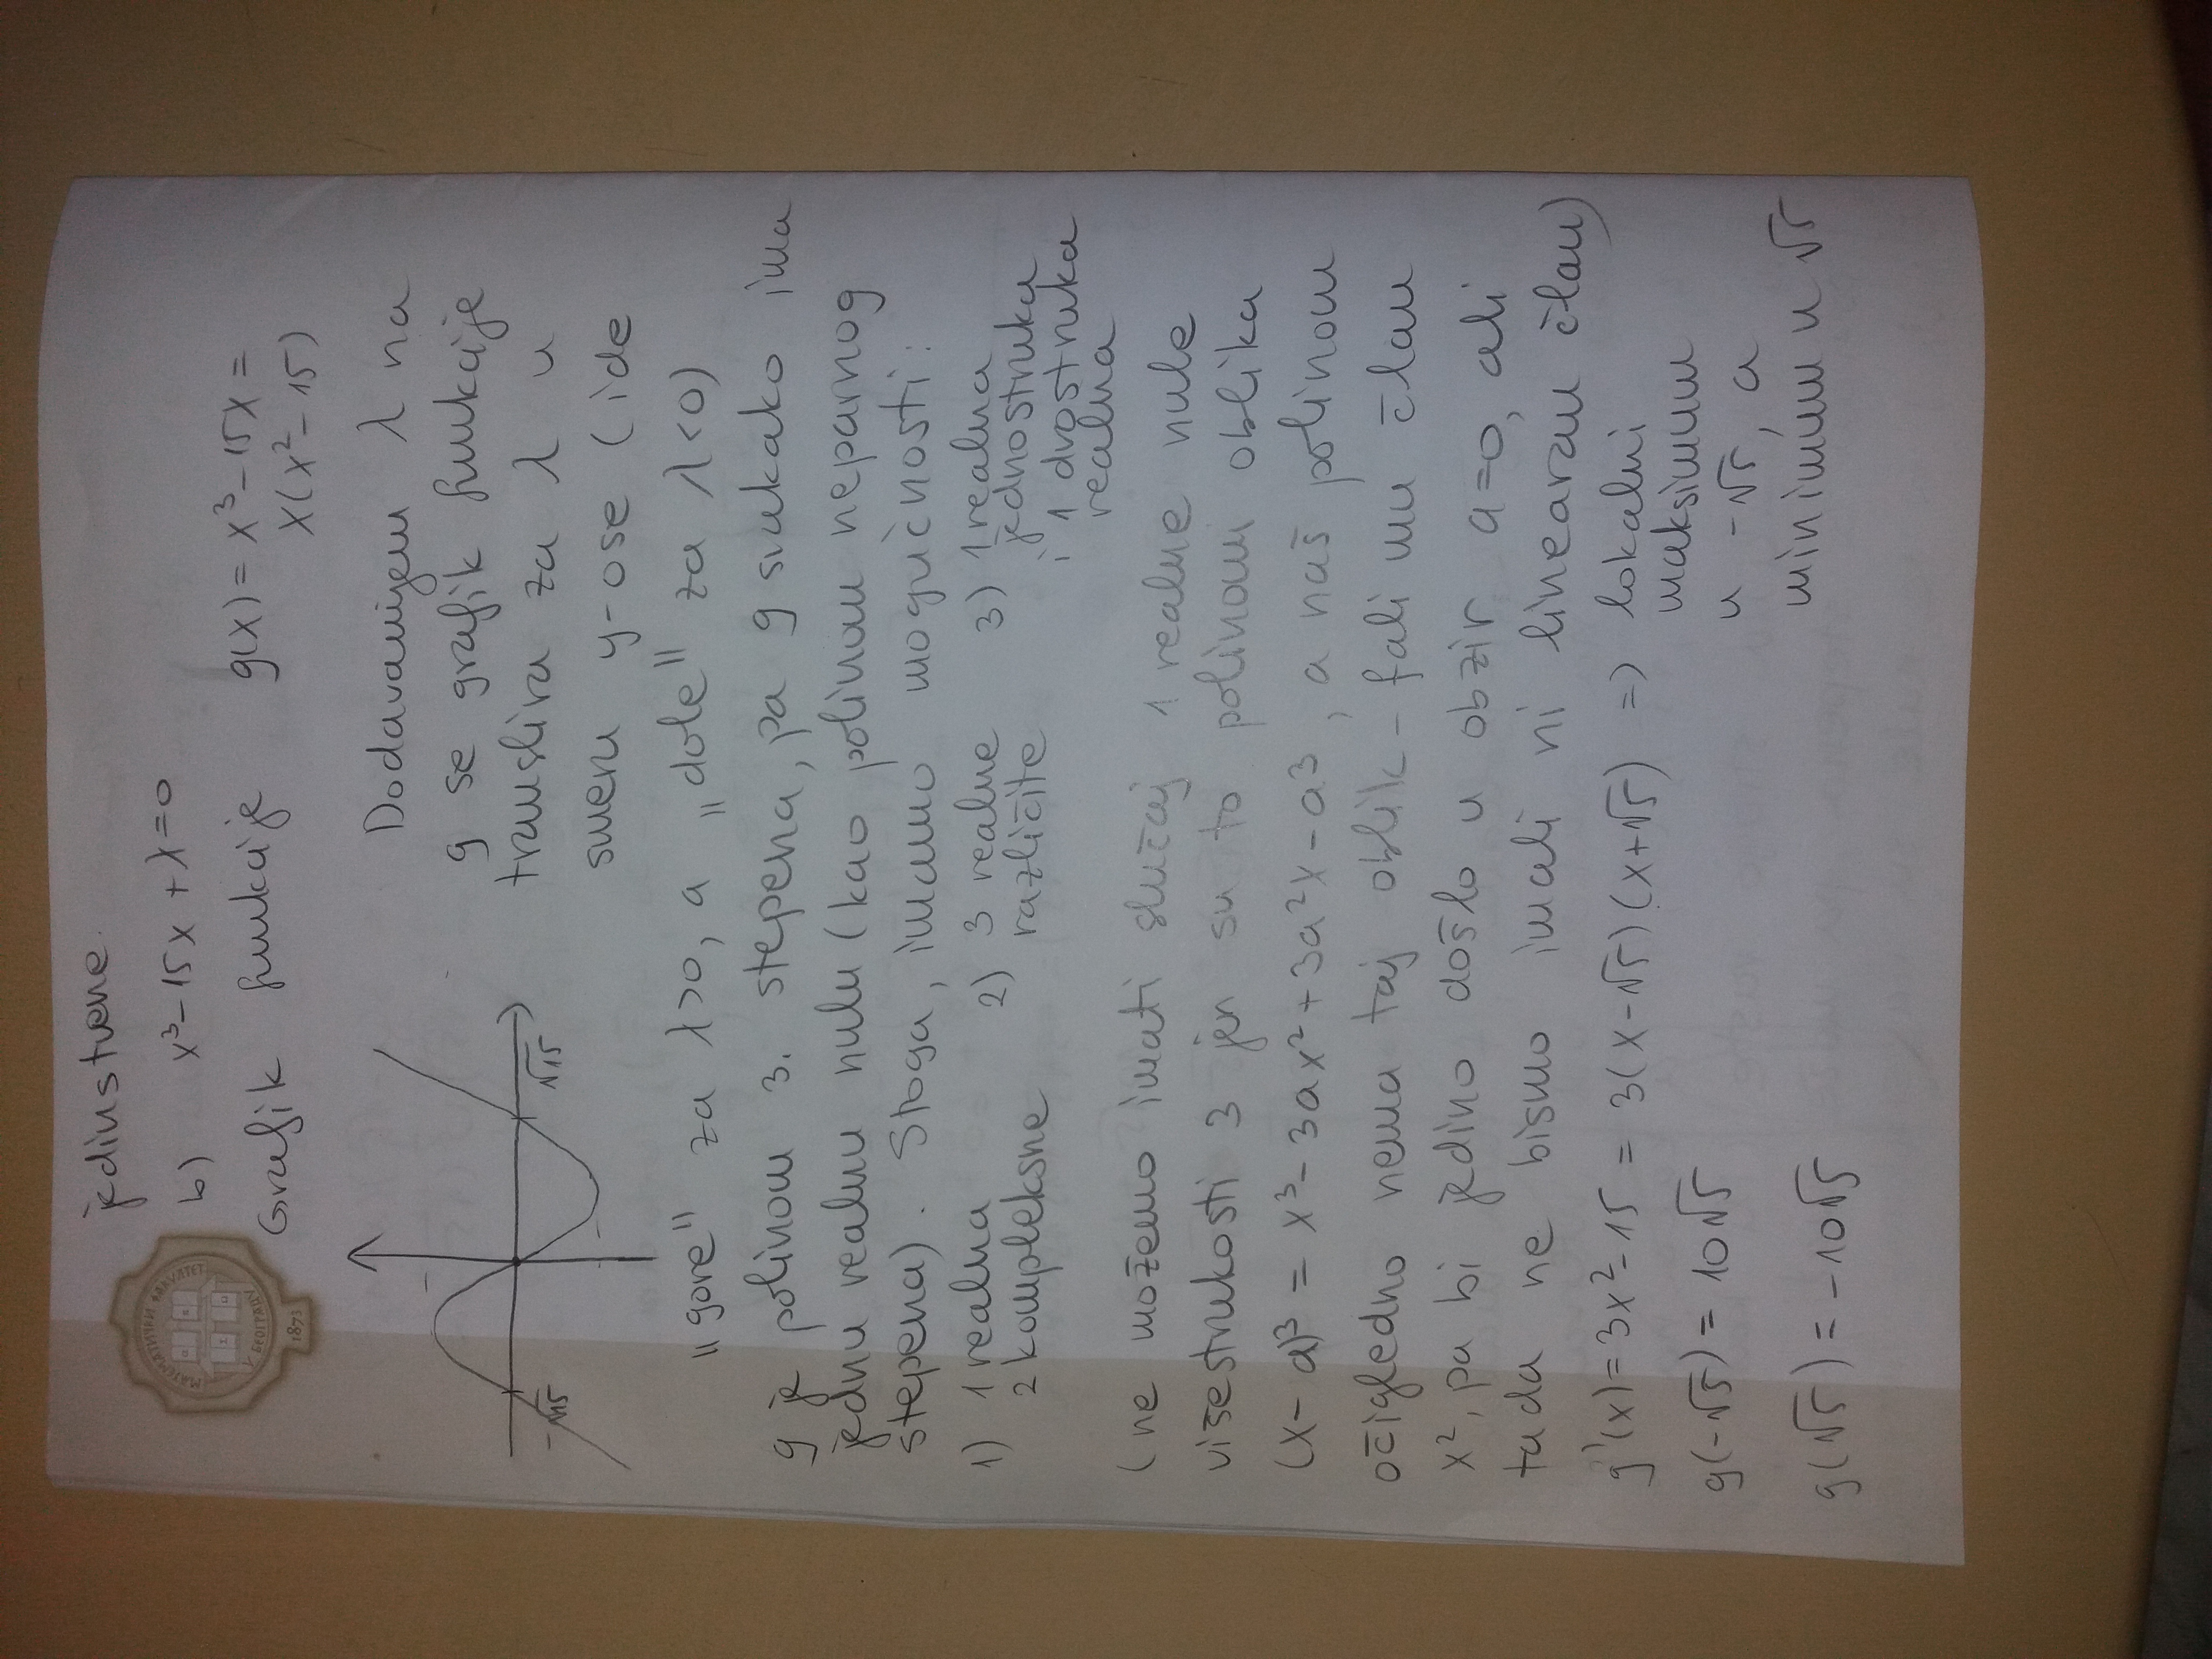 jedinstvene.
b) x³-15x+λ=0
Grafik funkcije g(x) = x³-15x =
x(x²-15)
МАТЕМАТИЧКИ ФАКУЛТЕТ
У БЕОГРАДУ
1873
-√15
√15
Dodavanjem λ na
g se grafik funkcije
translira za λ u
smeru y-ose (ide
„gore" za λ>0, a „dole" za λ<0)
g je polinom 3. stepena, pa g svakako ima
jednu realnu nulu (kao polinom neparnog
stepena). Stoga, imamo mogućnosti:
1) 1 realna
2 kompleksne
2) 3 realne
različite
3) 1 realna
jednostruka
i 1 dvostruka
realna
(ne možemo imati slučaj 1 realne nule
višestrukosti 3 jer su to polinomi oblika
(x-a)³ = x³-3ax²+3a²x-a³, a naš polinom
očigledno nema taj oblik - fali mu član
x², pa bi jedino došlo u obzir a=0, ali
tada ne bismo imali ni linearan član)
g'(x)=3x²-15 = 3(x-√5)(x+√5) => lokalni
maksimum
u -√5, a
minimum u √5
g(-√5) = 10√5
g(√5) = -10√5